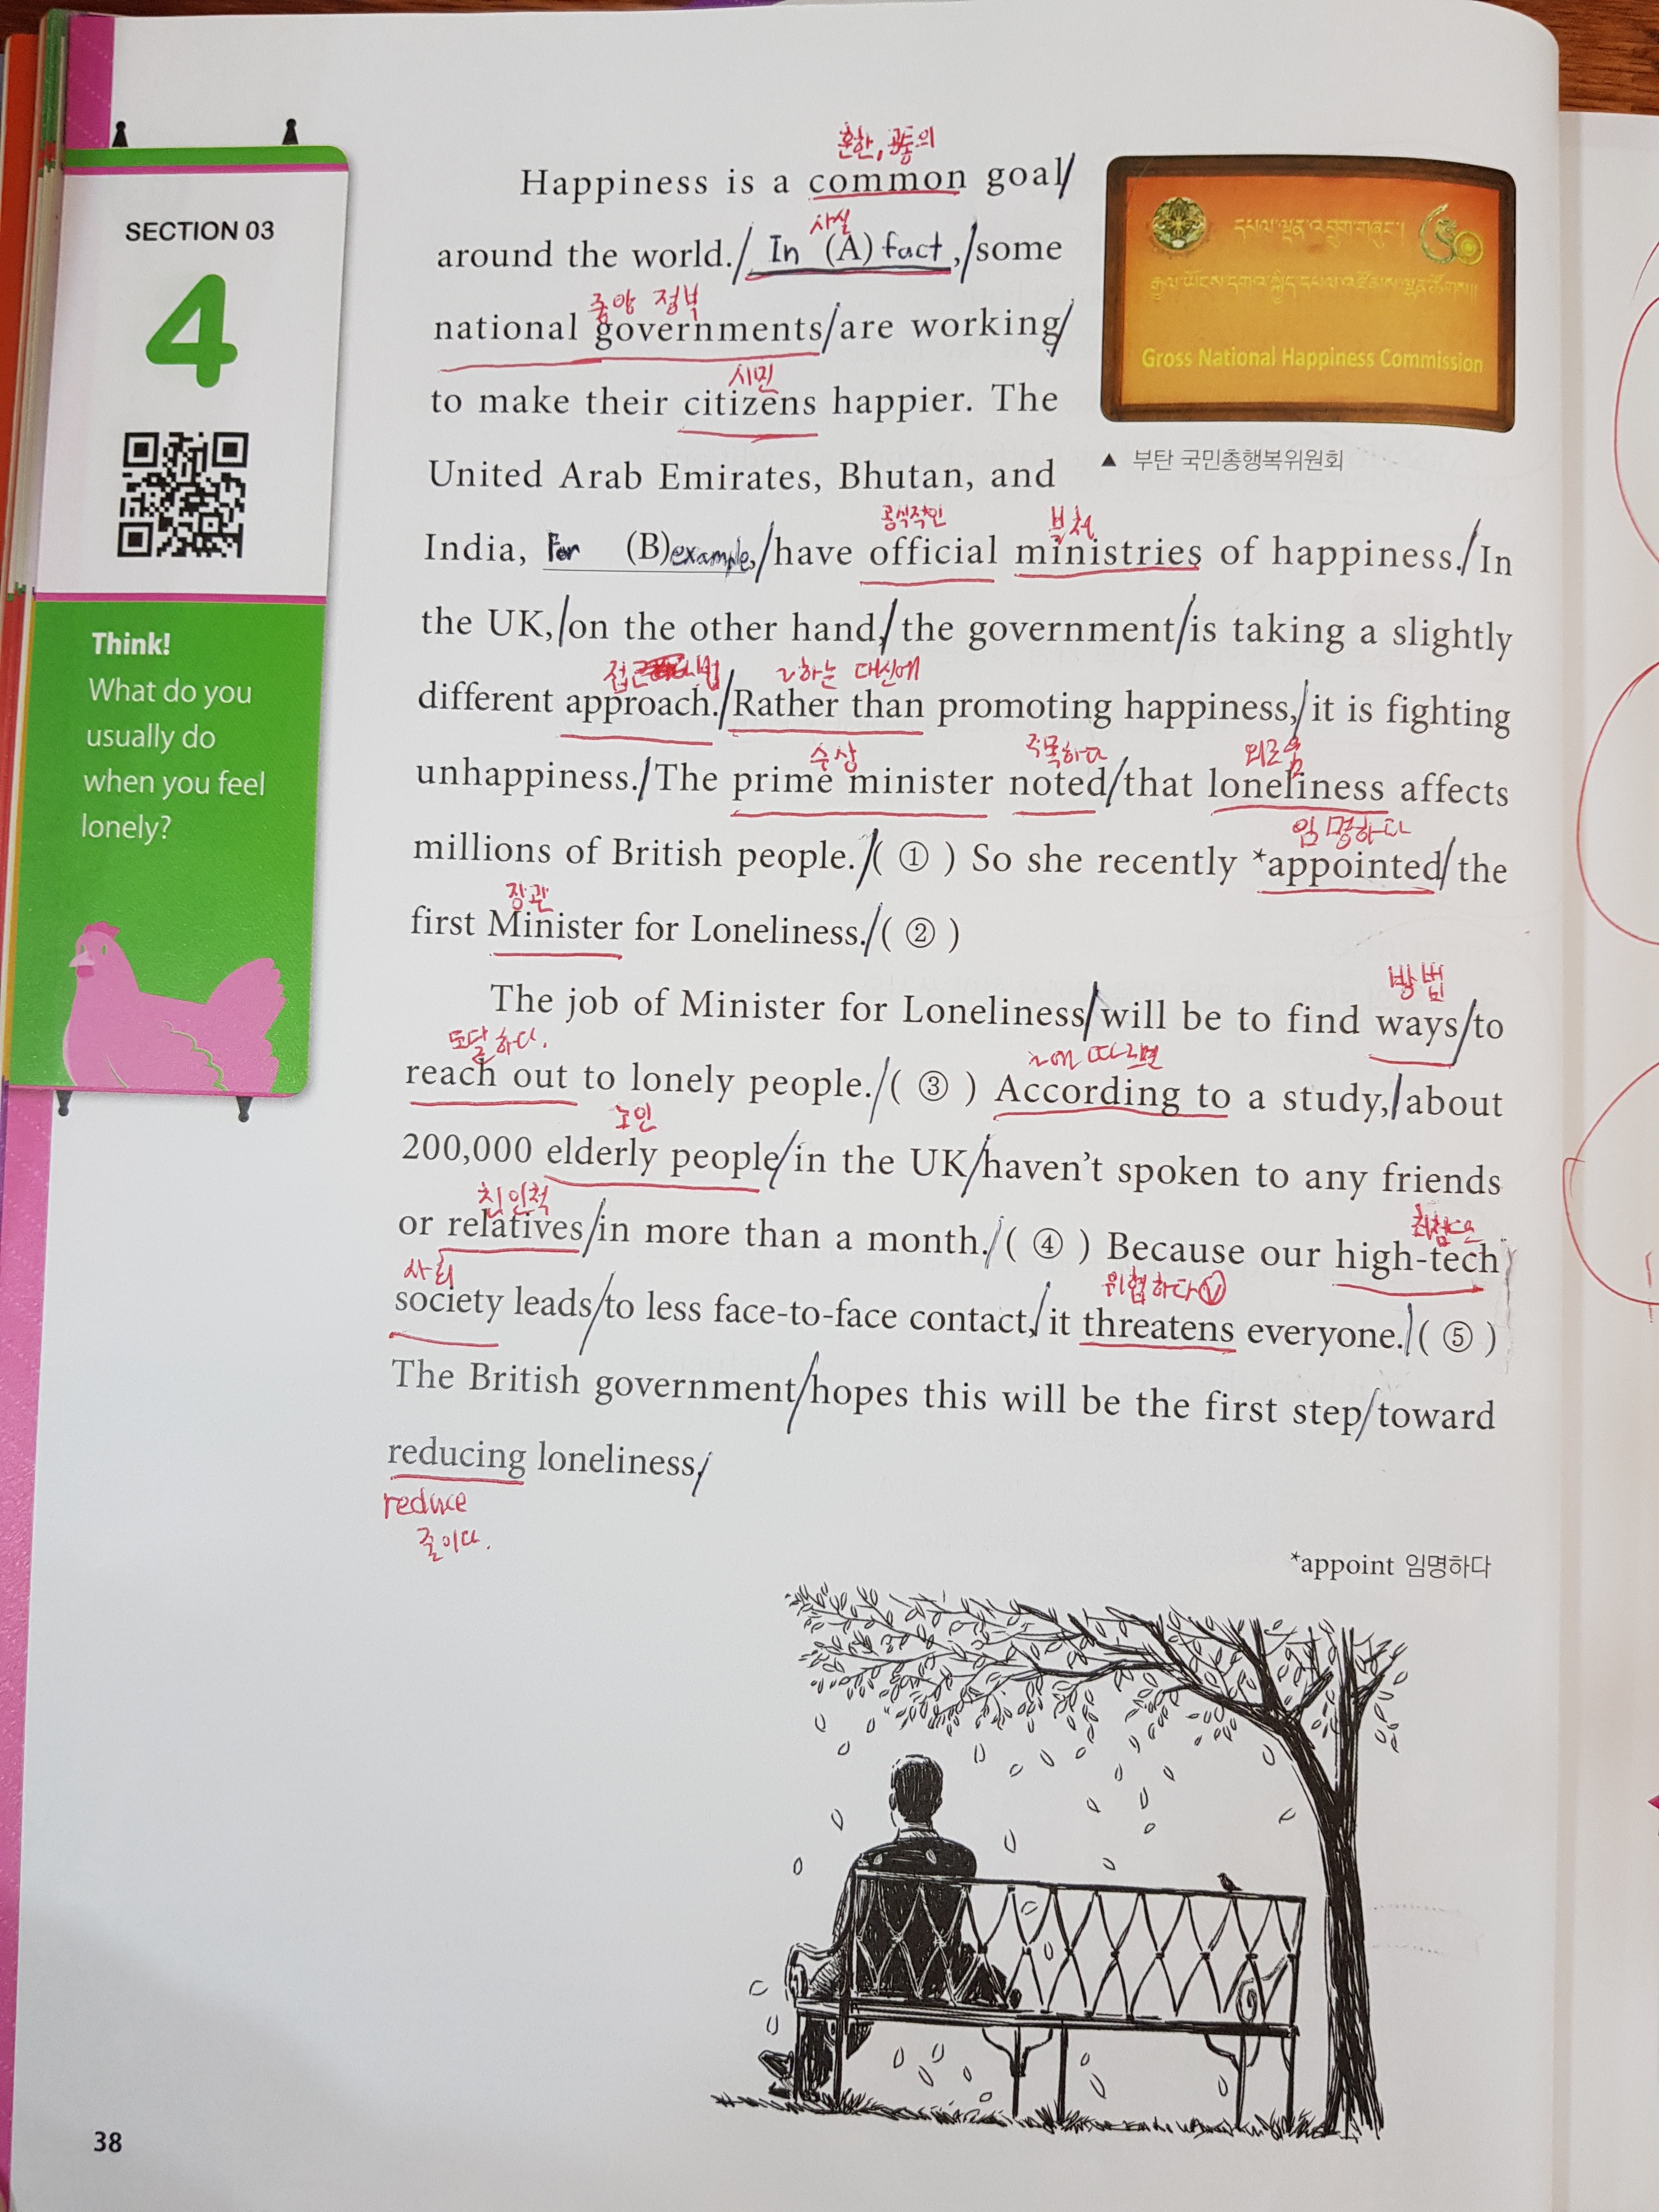 SECTION 03
4
Think!
What do you
usually do
when you feel
lonely?
흔한, 공통의
Happiness is a common goal/
사실
around the world./ In (A) fact,/some
중앙 정부
national governments/are working/
시민
to make their citizens happier. The
United Arab Emirates, Bhutan, and
Gross National Happiness Commission
▲ 부탄 국민총행복위원회
공식적인 부처
India, For (B) example,/have official ministries of happiness./In
the UK,/on the other hand,/the government/is taking a slightly
~하는 대신에
different approach./Rather than promoting happiness,/it is fighting
수상 주목하다 외로움
unhappiness./The prime minister noted/that loneliness affects
임명하다
millions of British people./( ① ) So she recently *appointed/the
장관
first Minister for Loneliness./( ② )
방법
The job of Minister for Loneliness/will be to find ways/to
도달하다. ~에 따르면
reach out to lonely people./( ③ ) According to a study,/about
노인
200,000 elderly people/in the UK/haven't spoken to any friends
친인척
or relatives/in more than a month./( ④ ) Because our high-tech
사회 위협하다Ⓥ
society leads/to less face-to-face contact,/it threatens everyone./( ⑤ )
The British government/hopes this will be the first step/toward
reducing loneliness./
reduce
줄이다.
*appoint 임명하다
38